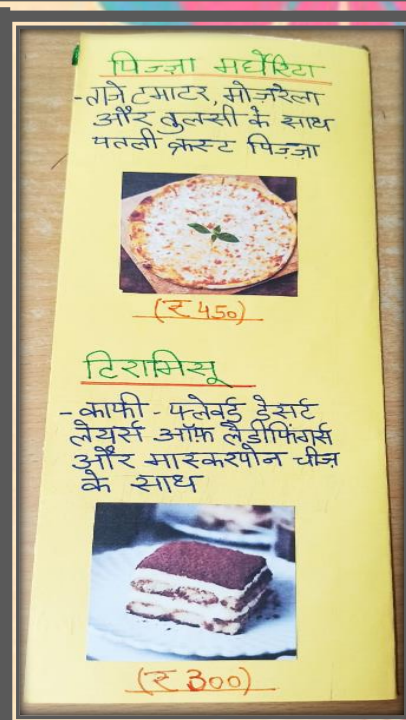 पिज्ज़ा मर्घेरिटा
-ताजे टमाटर, मोज़रैला
और तुलसी के साथ
पतली क्रस्ट पिज़्ज़ा
(₹ 450)
टिरामिसू
- काफी - फ्लेवर्ड डेसर्ट
लेयर्स ऑफ़ लैडीफिंगर्स
और मास्करपोन चीज़
के साथ
(₹ 300)